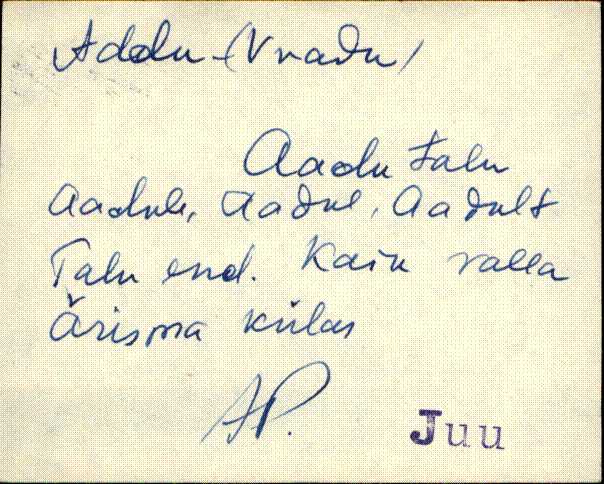 Addu - (Vnadu)
Aadu talu
Aadule, Aadul, Aadult
Talu end. Kaiu valla
Ärisma külas
AP.
Juu